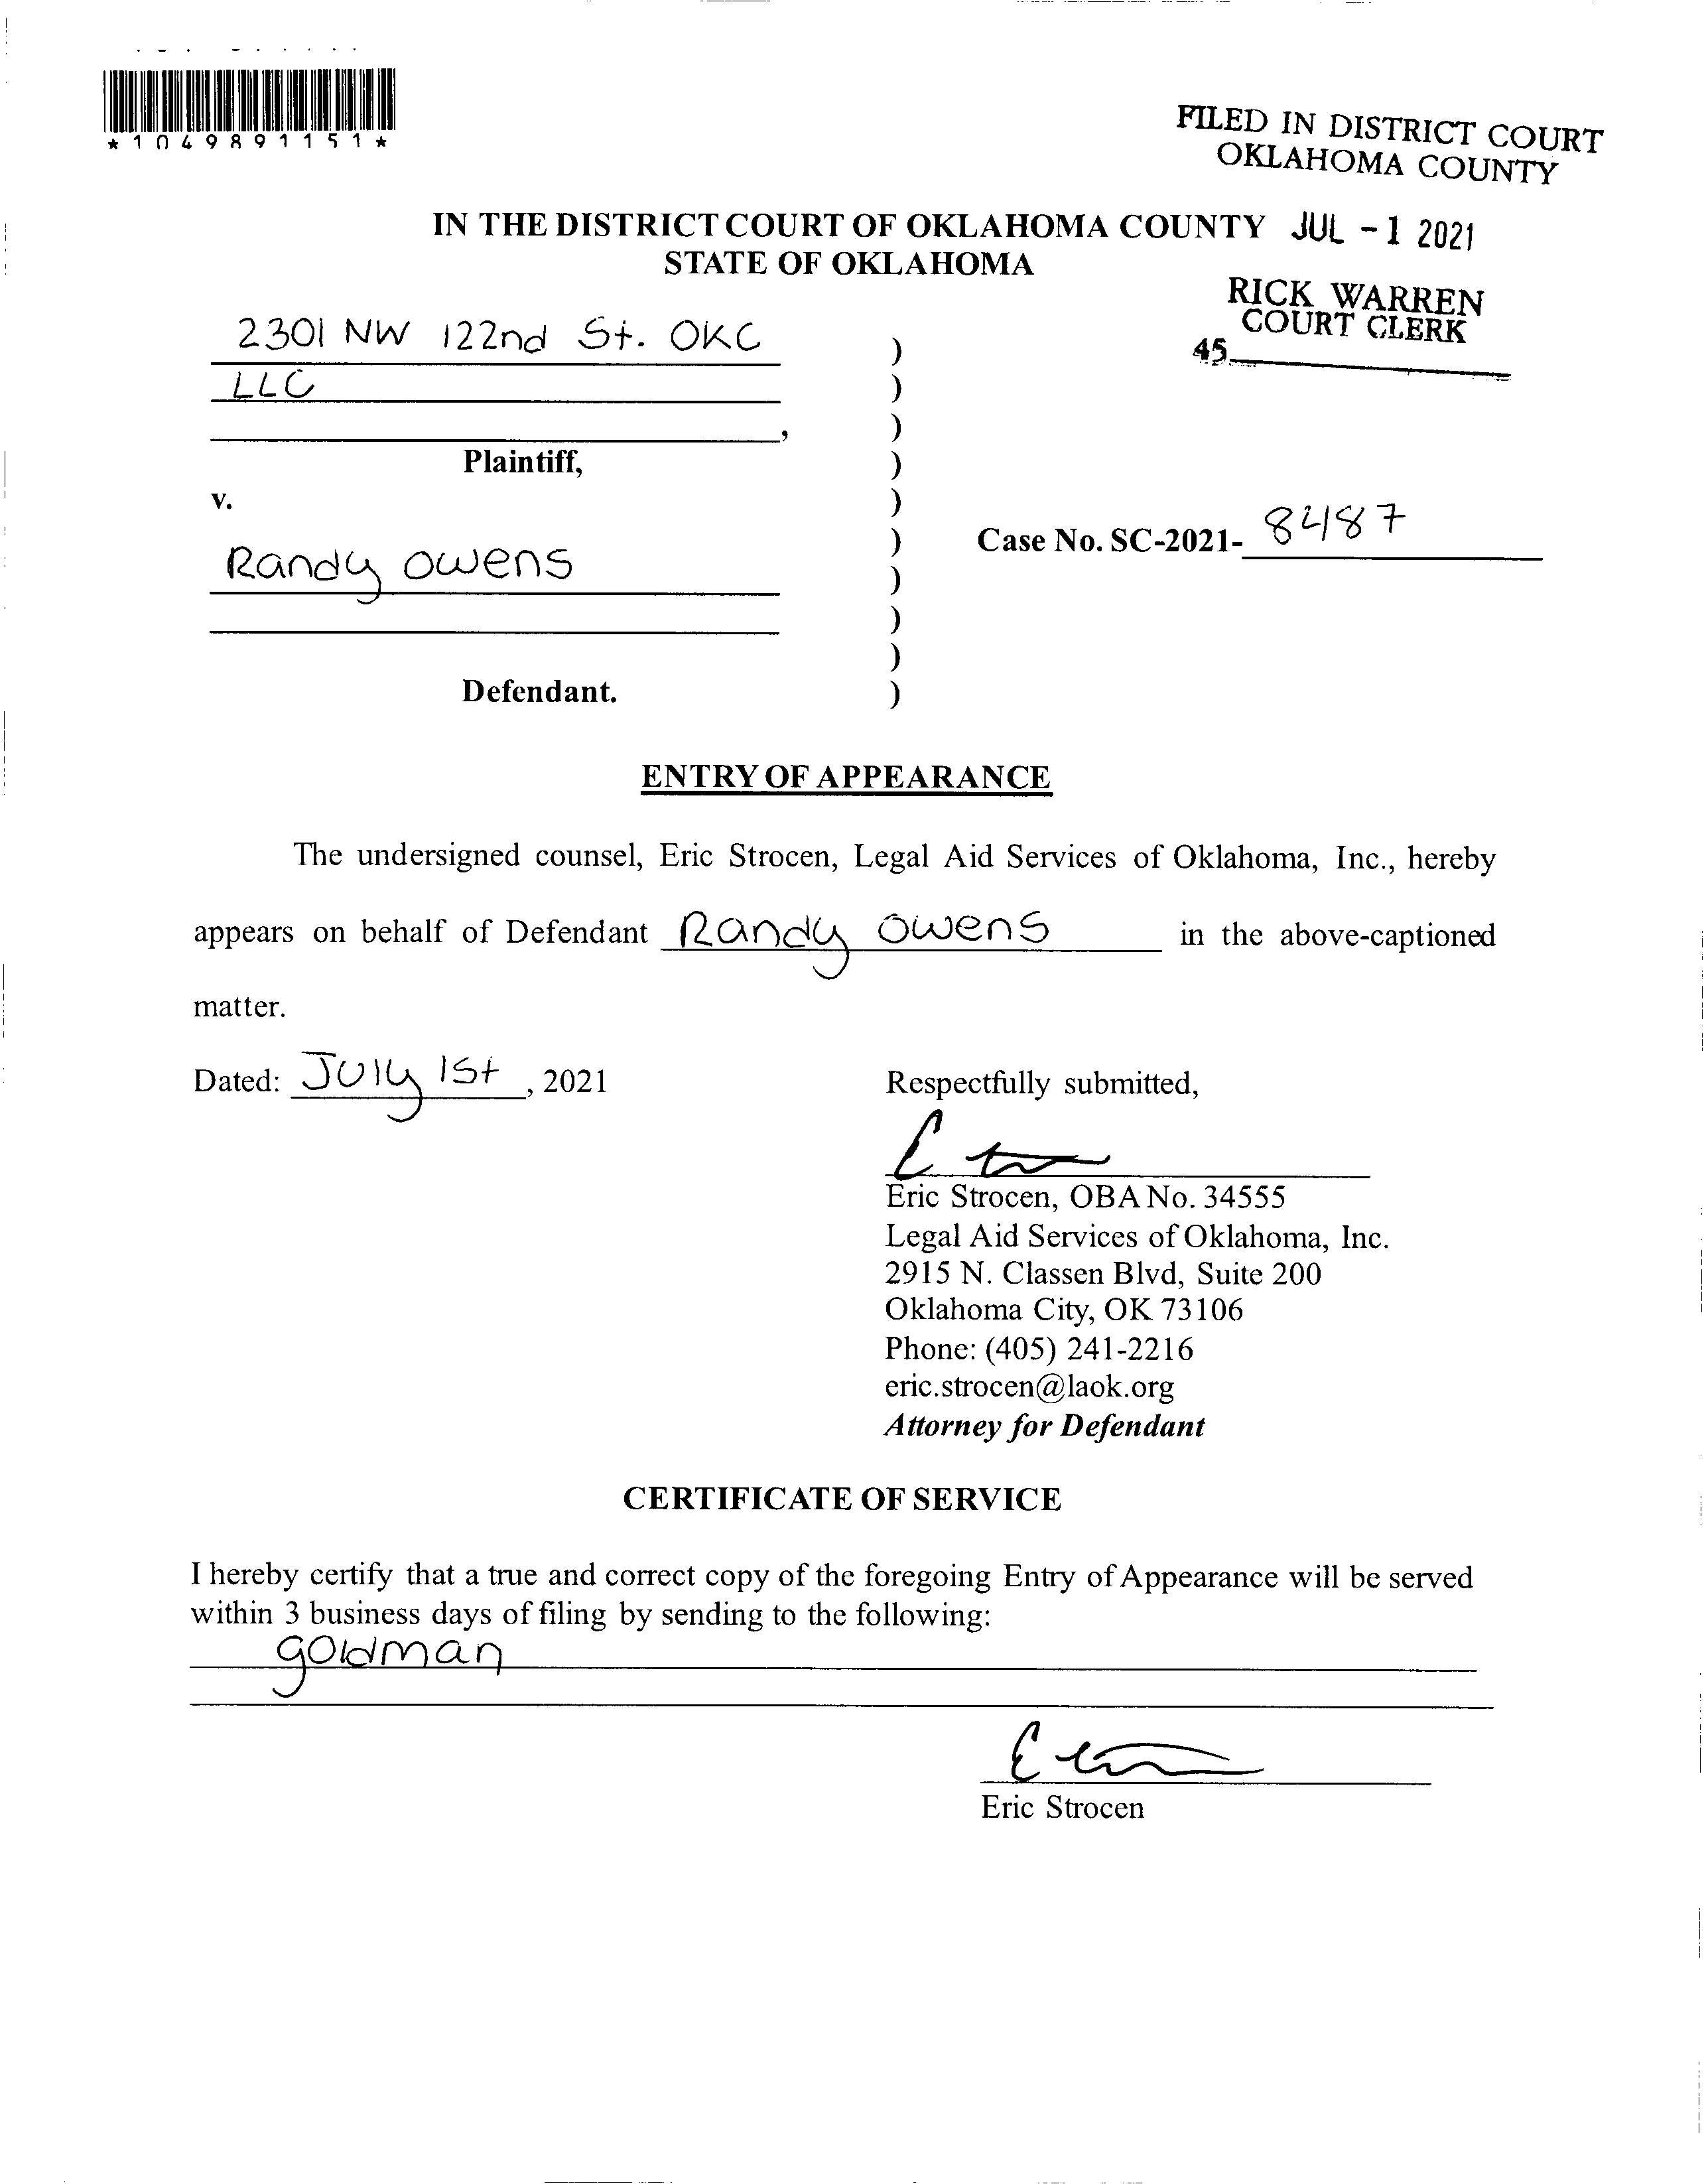 *1049891151*
FILED IN DISTRICT COURT
OKLAHOMA COUNTY
IN THE DISTRICT COURT OF OKLAHOMA COUNTY JUL - 1 2021
STATE OF OKLAHOMA
RICK WARREN
COURT CLERK
45
2301 NW 122nd St. OKC )
LLC )
, )
Plaintiff, )
v. )
Case No. SC-2021- 8487
Randy Owens )
)
)
)
Defendant. )
ENTRY OF APPEARANCE
The undersigned counsel, Eric Strocen, Legal Aid Services of Oklahoma, Inc., hereby
appears on behalf of Defendant Randy Owens in the above-captioned
matter.
Dated: July 1st, 2021
Respectfully submitted,
Eric Strocen, OBA No. 34555
Legal Aid Services of Oklahoma, Inc.
2915 N. Classen Blvd, Suite 200
Oklahoma City, OK 73106
Phone: (405) 241-2216
eric.strocen@laok.org
Attorney for Defendant
CERTIFICATE OF SERVICE
I hereby certify that a true and correct copy of the foregoing Entry of Appearance will be served
within 3 business days of filing by sending to the following:
goldman
Eric Strocen